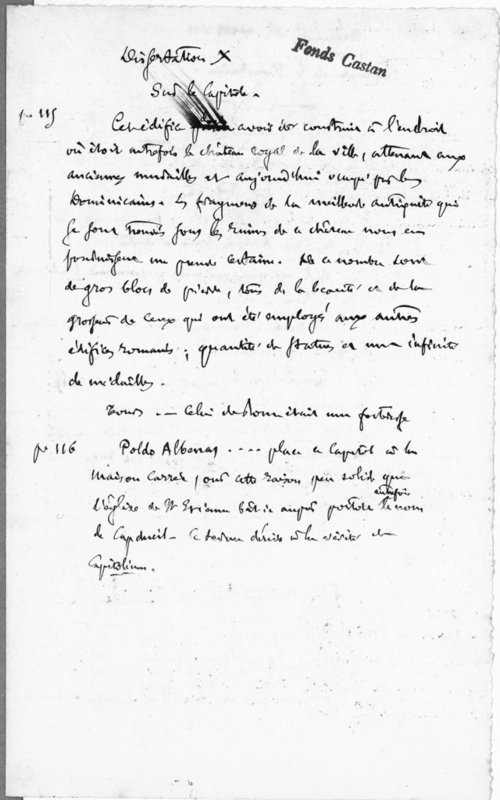 Dissertation X
Fonds Castan
Sur le Capitole.
pe 115
Cet édifice avoit été construit à l'endroit
où étoit autrefois le château royal de la ville, attenant aux
anciennes murailles et aujourd'hui occupé par les
Dominicains. les fragmens de la meilleure antiquité qui
se sont trouvés sous les ruines de ce château nous en
fournissent une preuve certaine. De ce nombre sont
de gros blocs de pierre, tous de la beauté et de la
grosseur de ceux qui ont été employés aux autres
édifices romains ; quantité de statues et une infinité
de médailles.
— Celui de Rome était une forteresse
pe 116
Poldo Albenas .... place ce Capitole à la
Maison Carrée, sur cette raison peu solide que
l'église de St Etienne bâtie auprès portoit autrefois le nom
de Capdueil — Ce terme dérive à la vérité de
Capitolium.